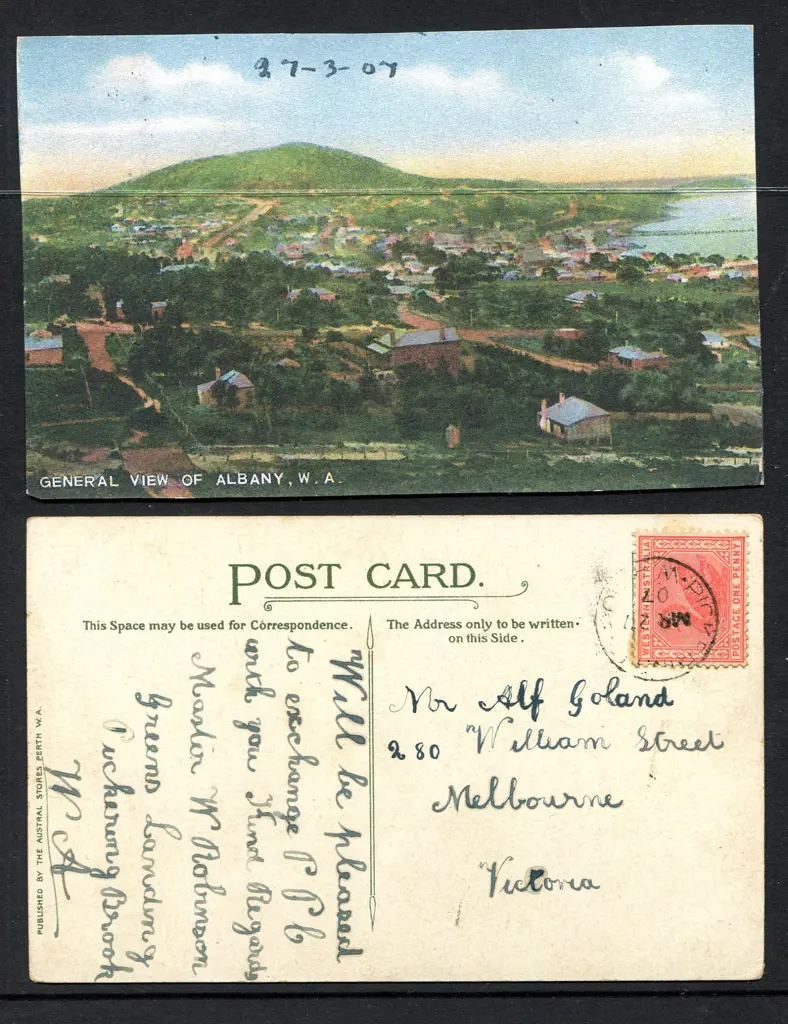 27-3-07
GENERAL VIEW OF ALBANY, W. A.
POST CARD.
This Space may be used for Correspondence.
The Address only to be written
on this Side.
WESTERN AUSTRALIA
POSTAGE ONE PENNY
Mr Alf Goland
280 William Street
Melbourne
Victoria
Will be pleased
to exchange P P C
with you Kind Regards
Master W Robinson
Greens Landing
Pickering Brook
W A
PUBLISHED BY THE AUSTRAL STORES PERTH W.A.